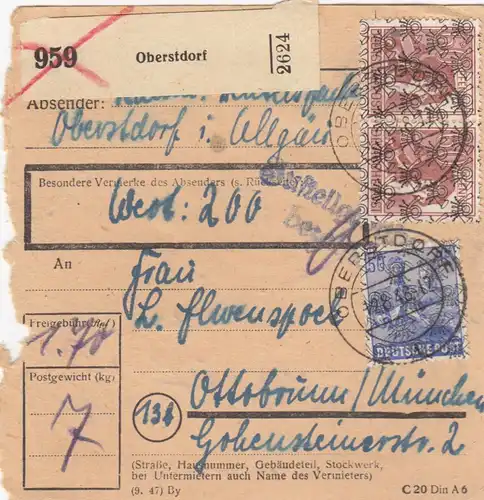 959 Oberstdorf 2624
Absender:
Oberstdorf i. Allgäu
Besondere Vermerke des Absenders (s. Rückseite)
Wert: 200
An
Frau
L. Elwenspoek
Freigebühr
1.70
Postgewicht (kg)
7
Ottobrunn/München
13b
Hohensteinerstr. 2
(Straße, Hausnummer, Gebäudeteil, Stockwerk,
bei Untermietern auch Name des Vermieters)
(9. 47) By
C 20 Din A 6
OBERSTDORF
50
DEUTSCHE POST